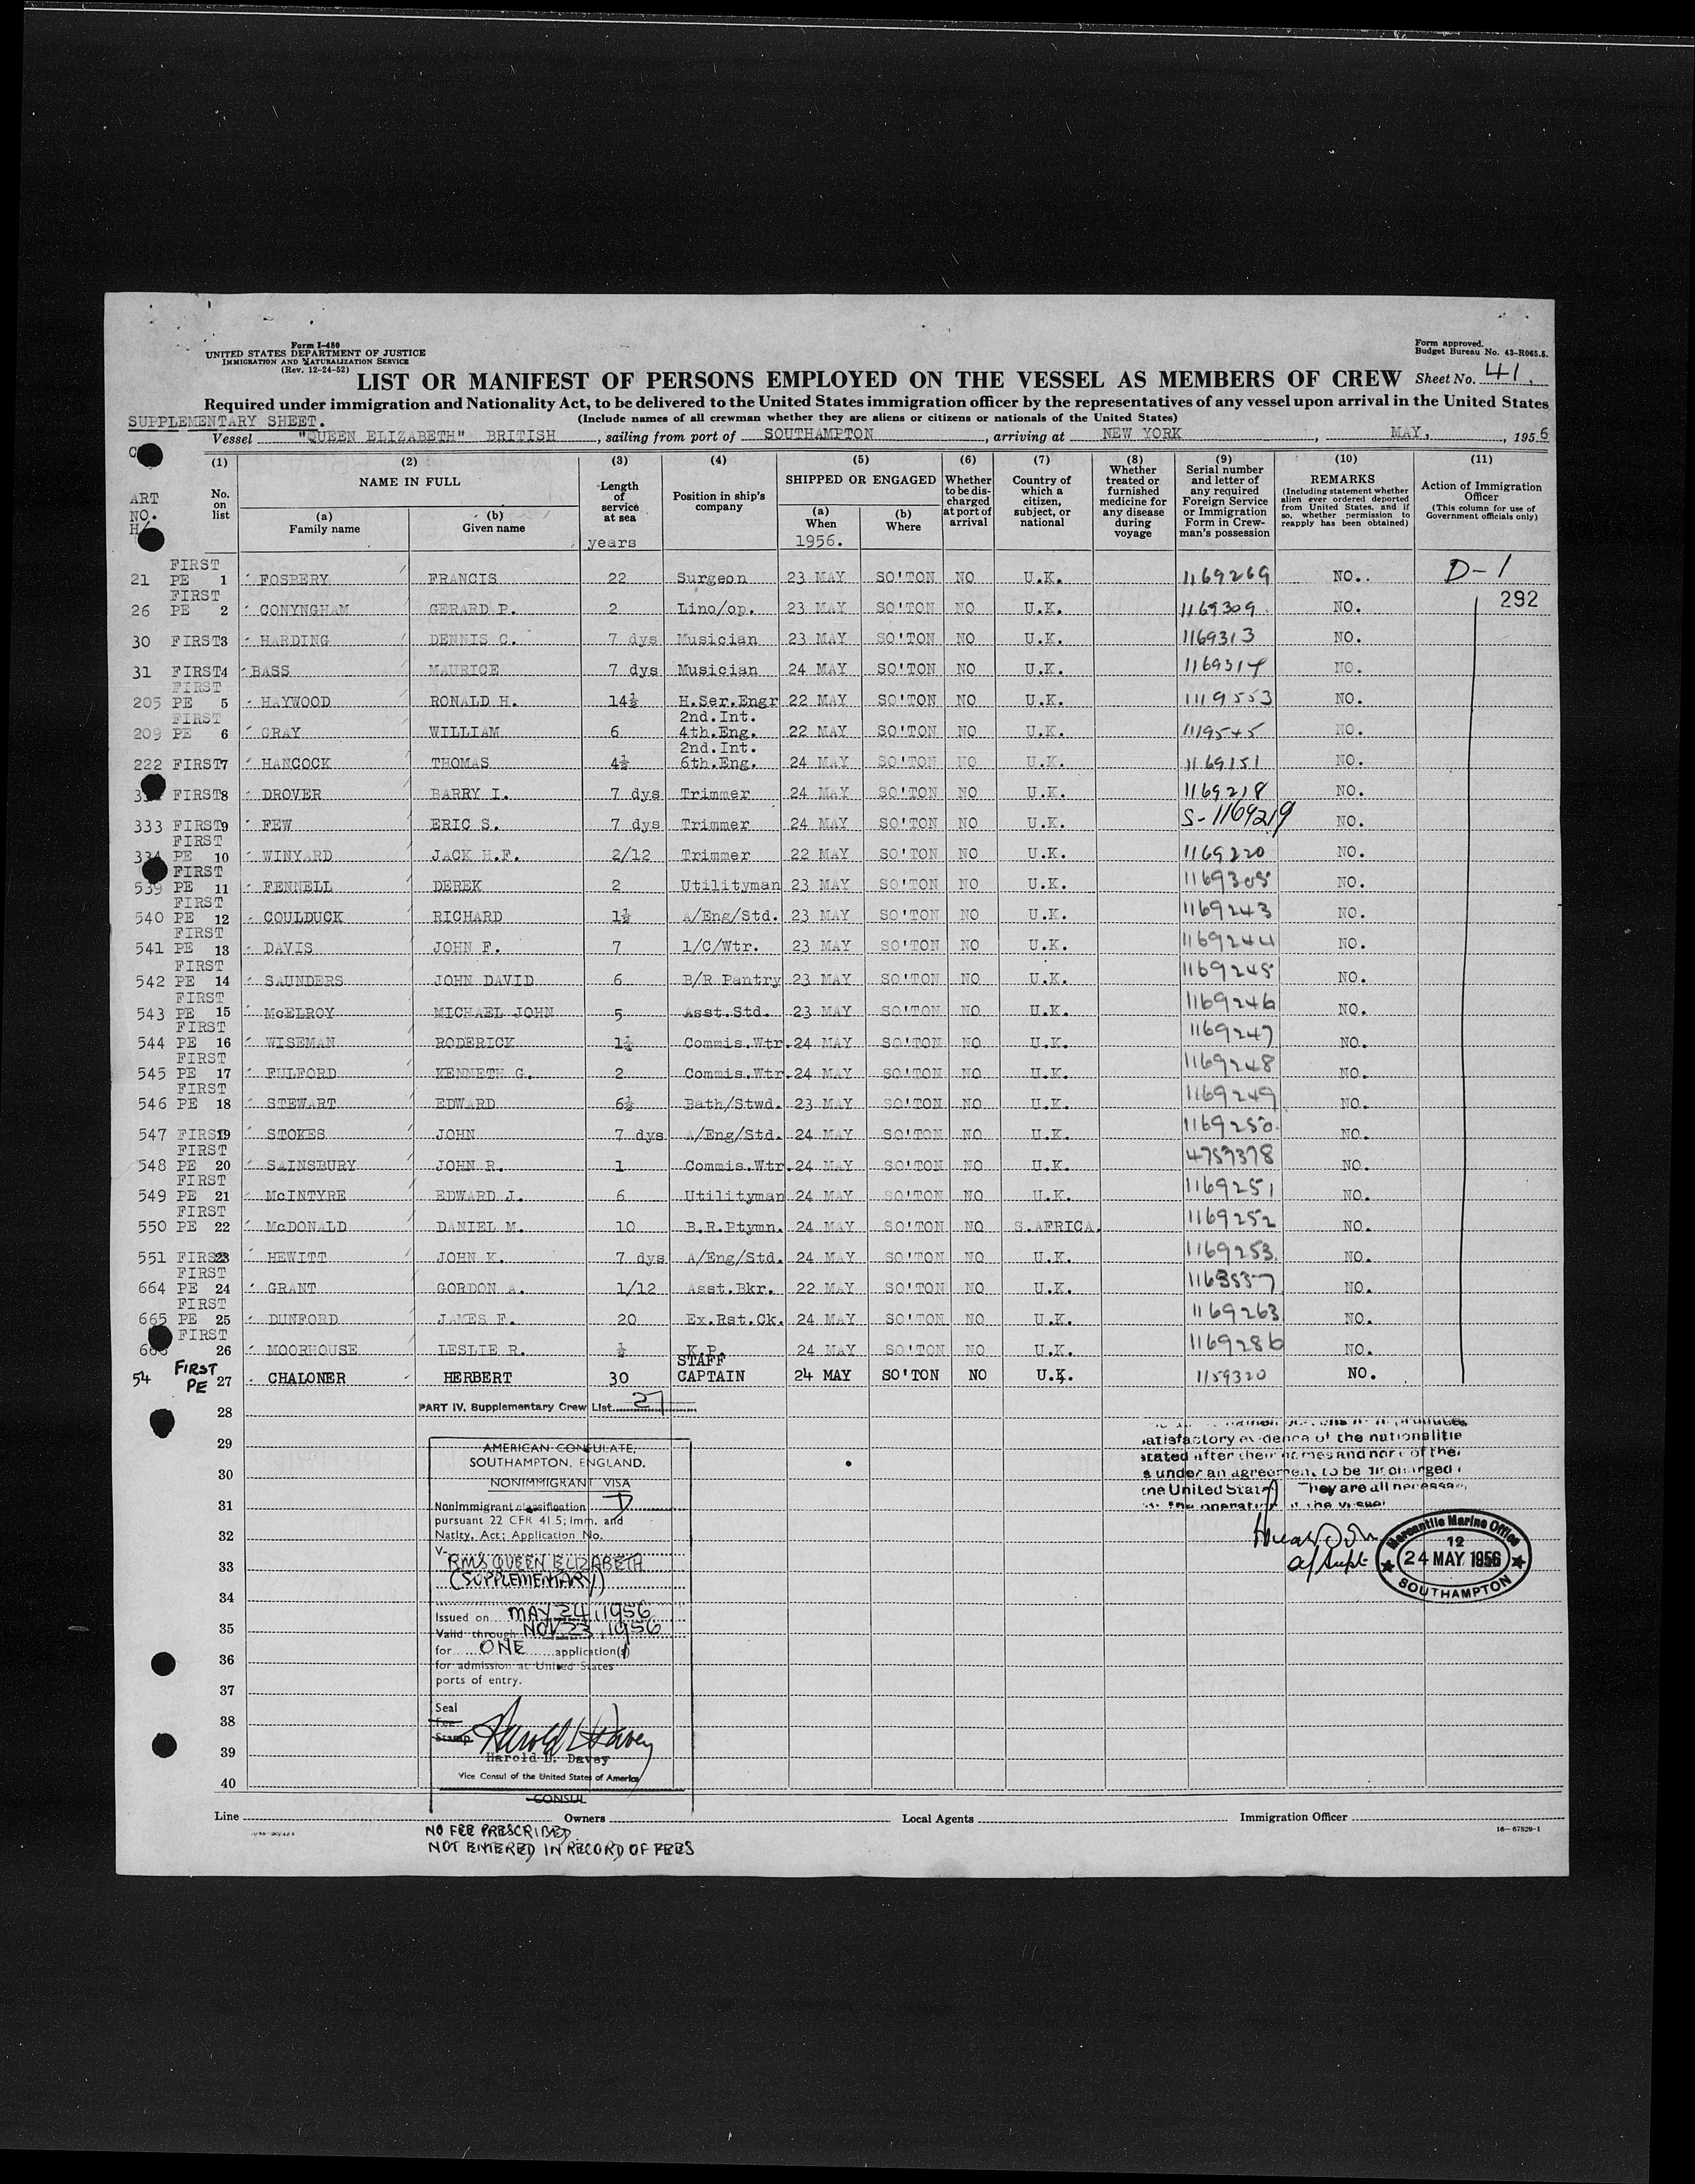 Form I-480
UNITED STATES DEPARTMENT OF JUSTICE
IMMIGRATION AND NATURALIZATION SERVICE
(Rev. 12-24-52)
Form approved.
Budget Bureau No. 43-R065.5.
LIST OR MANIFEST OF PERSONS EMPLOYED ON THE VESSEL AS MEMBERS OF CREW Sheet No. 41.
Required under immigration and Nationality Act, to be delivered to the United States immigration officer by the representatives of any vessel upon arrival in the United States
SUPPLEMENTARY SHEET. (Include names of all crewman whether they are aliens or citizens or nationals of the United States)
Vessel "QUEEN ELIZABETH" BRITISH, sailing from port of SOUTHAMPTON, arriving at NEW YORK, MAY, 1956
ART NO.
(1) No. on list
(2) NAME IN FULL (a) Family name (b) Given name
(3) Length of service at sea years
(4) Position in ship's company
(5) SHIPPED OR ENGAGED (a) When 1956. (b) Where
(6) Whether to be discharged at port of arrival
(7) Country of which a citizen, subject, or national
(8) Whether treated or furnished medicine for any disease during voyage
(9) Serial number and letter of any required Foreign Service or Immigration Form in Crewman's possession
(10) REMARKS (Including statement whether alien ever ordered deported from United States, and if so, whether permission to reapply has been obtained)
(11) Action of Immigration Officer (This column for use of Government officials only)
21 FIRST PE 1 FOSBERY FRANCIS 22 Surgeon 23 MAY SO'TON NO U.K. 1169269 NO. D-1
26 FIRST PE 2 CONYNGHAM GERARD P. 2 Lino/op. 23 MAY SO'TON NO U.K. 1169309 NO. 292
30 FIRST 3 HARDING DENNIS C. 7 dys Musician 23 MAY SO'TON NO U.K. 1169313 NO.
31 FIRST 4 BASS MAURICE 7 dys Musician 24 MAY SO'TON NO U.K. 1169314 NO.
205 FIRST PE 5 HAYWOOD RONALD H. 14½ H.Ser.Engr 22 MAY SO'TON NO U.K. 1119553 NO.
209 FIRST PE 6 GRAY WILLIAM 6 2nd.Int. 4th.Eng. 22 MAY SO'TON NO U.K. 1119545 NO.
222 FIRST 7 HANCOCK THOMAS 4½ 2nd.Int. 6th.Eng. 24 MAY SO'TON NO U.K. 1169151 NO.
FIRST 8 DROVER BARRY I. 7 dys Trimmer 24 MAY SO'TON NO U.K. 1169218 NO.
333 FIRST 9 FEW ERIC S. 7 dys Trimmer 24 MAY SO'TON NO U.K. S-1169219 NO.
334 FIRST PE 10 WINYARD JACK H.F. 2/12 Trimmer 22 MAY SO'TON NO U.K. 1169220 NO.
539 FIRST PE 11 FENNELL DEREK 2 Utilityman 23 MAY SO'TON NO U.K. 1169305 NO.
540 FIRST PE 12 COULDUCK RICHARD 1½ A/Eng/Std. 23 MAY SO'TON NO U.K. 1169243 NO.
541 FIRST PE 13 DAVIS JOHN F. 7 1/C/Wtr. 23 MAY SO'TON NO U.K. 1169244 NO.
542 FIRST PE 14 SAUNDERS JOHN DAVID 6 B/R Pantry 23 MAY SO'TON NO U.K. 1169245 NO.
543 FIRST PE 15 McELROY MICHAEL JOHN 5 Asst.Std. 23 MAY SO'TON NO U.K. 1169246 NO.
544 FIRST PE 16 WISEMAN RODERICK 1½ Commis.Wtr. 24 MAY SO'TON NO U.K. 1169247 NO.
545 FIRST PE 17 FULFORD KENNETH G. 2 Commis.Wtr. 24 MAY SO'TON NO U.K. 1169248 NO.
546 FIRST PE 18 STEWART EDWARD 6½ Bath/Stwd. 23 MAY SO'TON NO U.K. 1169249 NO.
547 FIRST 19 STOKES JOHN 7 dys A/Eng/Std. 24 MAY SO'TON NO U.K. 1169250. NO.
548 FIRST PE 20 SAINSBURY JOHN R. 1 Commis.Wtr. 24 MAY SO'TON NO U.K. 4757378 NO.
549 FIRST PE 21 McINTYRE EDWARD J. 6 Utilityman 24 MAY SO'TON NO U.K. 1169251 NO.
550 FIRST PE 22 McDONALD DANIEL M. 10 B.R.Ptymn. 24 MAY SO'TON NO S.AFRICA. 1169252 NO.
551 FIRST 23 HEWITT JOHN K. 7 dys A/Eng/Std. 24 MAY SO'TON NO U.K. 1169253. NO.
664 FIRST PE 24 GRANT GORDON A. 1/12 Asst.Bkr. 22 MAY SO'TON NO U.K. 1163537 NO.
665 FIRST PE 25 DUNFORD JAMES F. 20 Ex.Rst.Ck. 24 MAY SO'TON NO U.K. 1169263 NO.
FIRST 26 MOORHOUSE LESLIE R. ½ K.P. 24 MAY SO'TON NO U.K. 1169286 NO.
54 FIRST PE 27 CHALONER HERBERT 30 STAFF CAPTAIN 24 MAY SO'TON NO U.K. 1159320 NO.
28 PART IV, Supplementary Crew List 27
29
30
31
32
33
34
35
36
37
38
39
40
AMERICAN CONSULATE,
SOUTHAMPTON, ENGLAND.
NONIMMIGRANT VISA
Nonimmigrant classification D
pursuant 22 CFR 41.5; Imm. and
Natlty. Act; Application No.
V-
RMS QUEEN ELIZABETH
(SUPPLEMENTARY)
Issued on MAY 24, 1956
Valid through NOV 23, 1956
for ONE application(s)
for admission at United States
ports of entry.
Seal
Fee
Stamp
Harold L Davey
Harold L. Davey
Vice Consul of the United States of America
CONSUL
satisfactory evidence of the nationalitie
stated after their names and none of the
s under an agreement to be discharged
the United States They are all necessary
the operation of the vessel
a/Supt
Mercantile Marine Office
12
24 MAY 1956
SOUTHAMPTON
Line Owners Local Agents Immigration Officer
16-67529-1
NO FEE PRESCRIBED
NOT ENTERED IN RECORD OF FEES